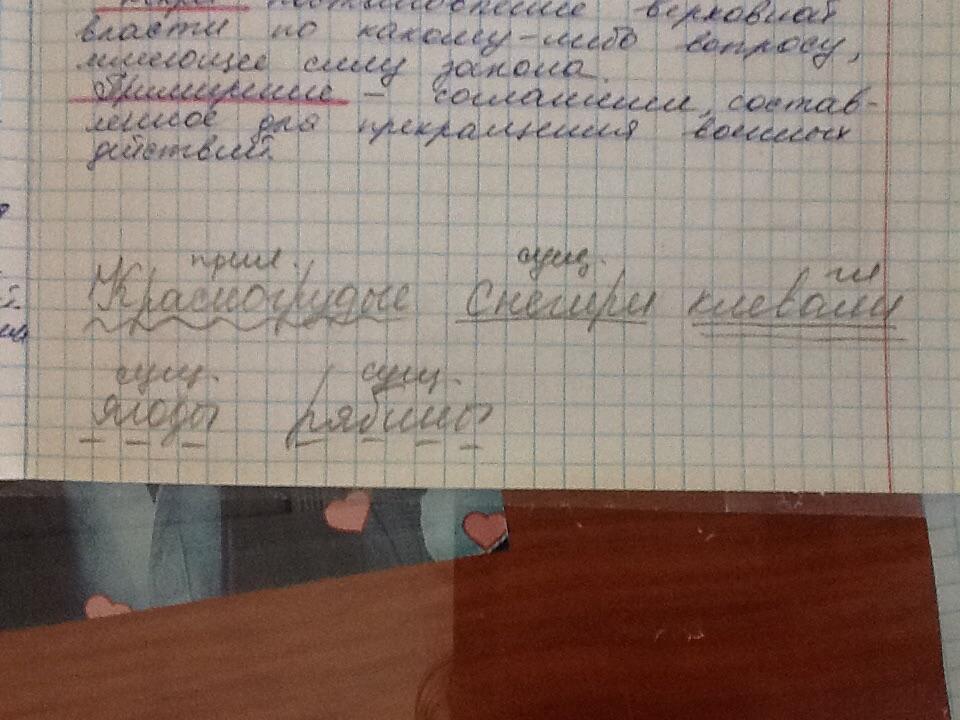 постановление верховной
власти по какому-либо вопросу,
имеющее силу закона.
Примирение - соглашении, состав-
ленное для прекращения военных
действий.
прил. сущ. гл
Красногрудые снегири клевали
сущ. сущ.
ягоды рябины